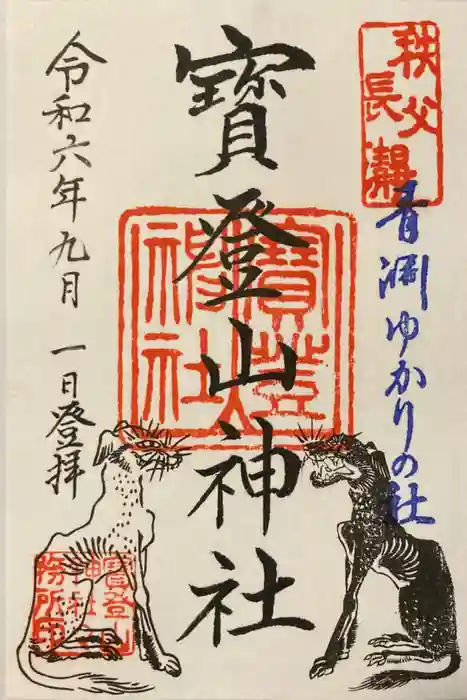 秩父
長瀞
青淵ゆかりの社
寶登山神社
寶登山
神社
令和六年九月一日登拝
寶登山
神社
務所印